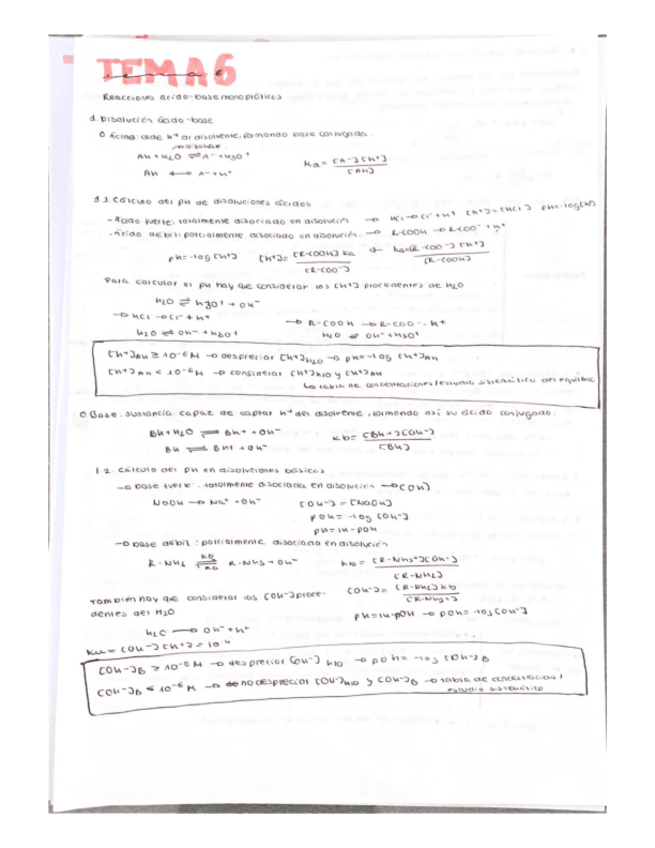 TEMA 6
Reacciones ácido-base monopróticos
1. Disolución ácido-base
Ácido: cede H+ al disolvente, formando base conjugada.
AH + H2O ⇌ A- + H3O+
AH ⟷ A- + H+
Ka = [A-][H+] / [AH]
1.1. Cálculo del pH de disoluciones ácidos
- Ácido fuerte: totalmente disociado en disolución → HCl → Cl- + H+ [H+] = [HCl] pH = -log[H+]
- Ácido débil: parcialmente disociado en disolución → R-COOH → R-COO- + H+
pH = -log [H+] [H+] = [R-COOH] Ka / [R-COO-] Ka = [R-COO-][H+] / [R-COOH]
Para calcular el pH hay que considerar los [H+] procedentes de H2O
H2O ⇌ H3O+ + OH-
→ HCl → Cl- + H+ → R-COOH → R-COO- · H+
H2O ⇌ OH- + H3O+ H2O ⇌ OH- + H3O+
[H+]AH ≥ 10-6 M → despreciar [H+]H2O → pH = -log [H+]AH
[H+]AH < 10-6 M → considerar [H+]H2O y [H+]AH
↳ tabla de concentraciones / estudio sistemático del equilibrio
Base: sustancia capaz de captar H+ del disolvente, formando así su ácido conjugado.
BH + H2O ⇌ BH+ + OH-
Kb = [BH+][OH-] / [BH]
1.2. Cálculo del pH en disoluciones básicos
→ base fuerte: totalmente disociada en disolución → [OH]
NaOH → Na+ + OH- [OH-] = [NaOH]
pOH = -log [OH-]
pH = 14 - pOH
→ base débil: parcialmente disociada en disolución
R-NH2 ⇌ R-NH3 + OH- Kb = [R-NH3+][OH-] / [R-NH2]
También hay que considerar los [OH-] proce-
dentes del H2O
[OH-] = [R-NH2] Kb / [R-NH3+]
pH = 14 - pOH → pOH = -log [OH-]
H2O → OH- + H+
Kw = [OH-][H+] = 10
[OH-]B ≥ 10-6 M → despreciar [OH-] H2O → pOH = -log [OH-]B
[OH-]B < 10-6 M → de no despreciar [OH-]H2O y [OH-]B → tabla de concentracións /
estudio sistemático